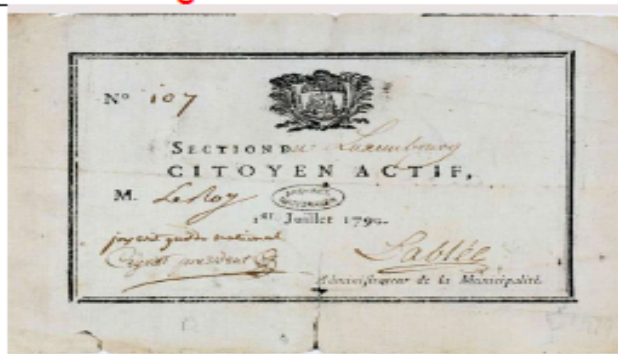 Nº 107
SECTION du Luxembourg
CITOYEN ACTIF,
M. LeRoy
1er. Juillet 1790.
garde national
président
Sablée
Administrateur de la Municipalité.